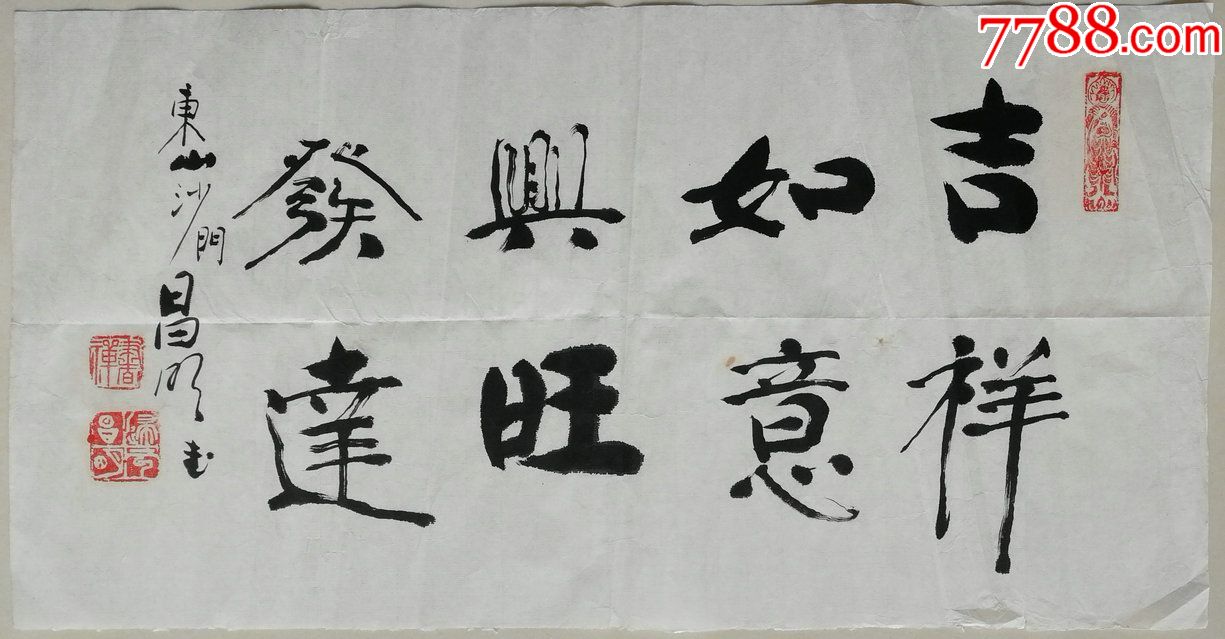 7788.com
吉祥
如意
興旺
發達
東山沙門昌明书
書禪
昌明